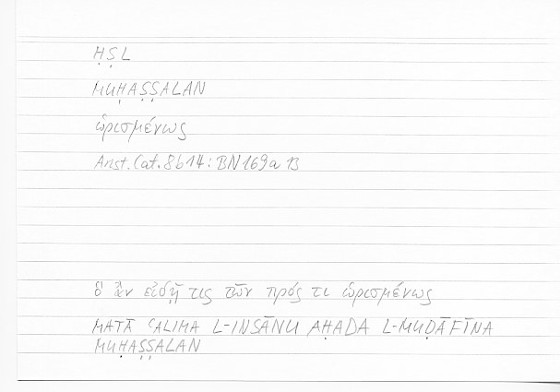 ḤṢL
MUḤAṢṢALAN
ὡρισμένως
Arist. Cat. 8b14: BN 169a13
ὃ ἂν εἰδῇ τις τῶν πρός τι ὡρισμένως
MATĀ ʿALIMA L-INSĀNU AḤADA L-MUḌĀFĪNA
MUḤAṢṢALAN